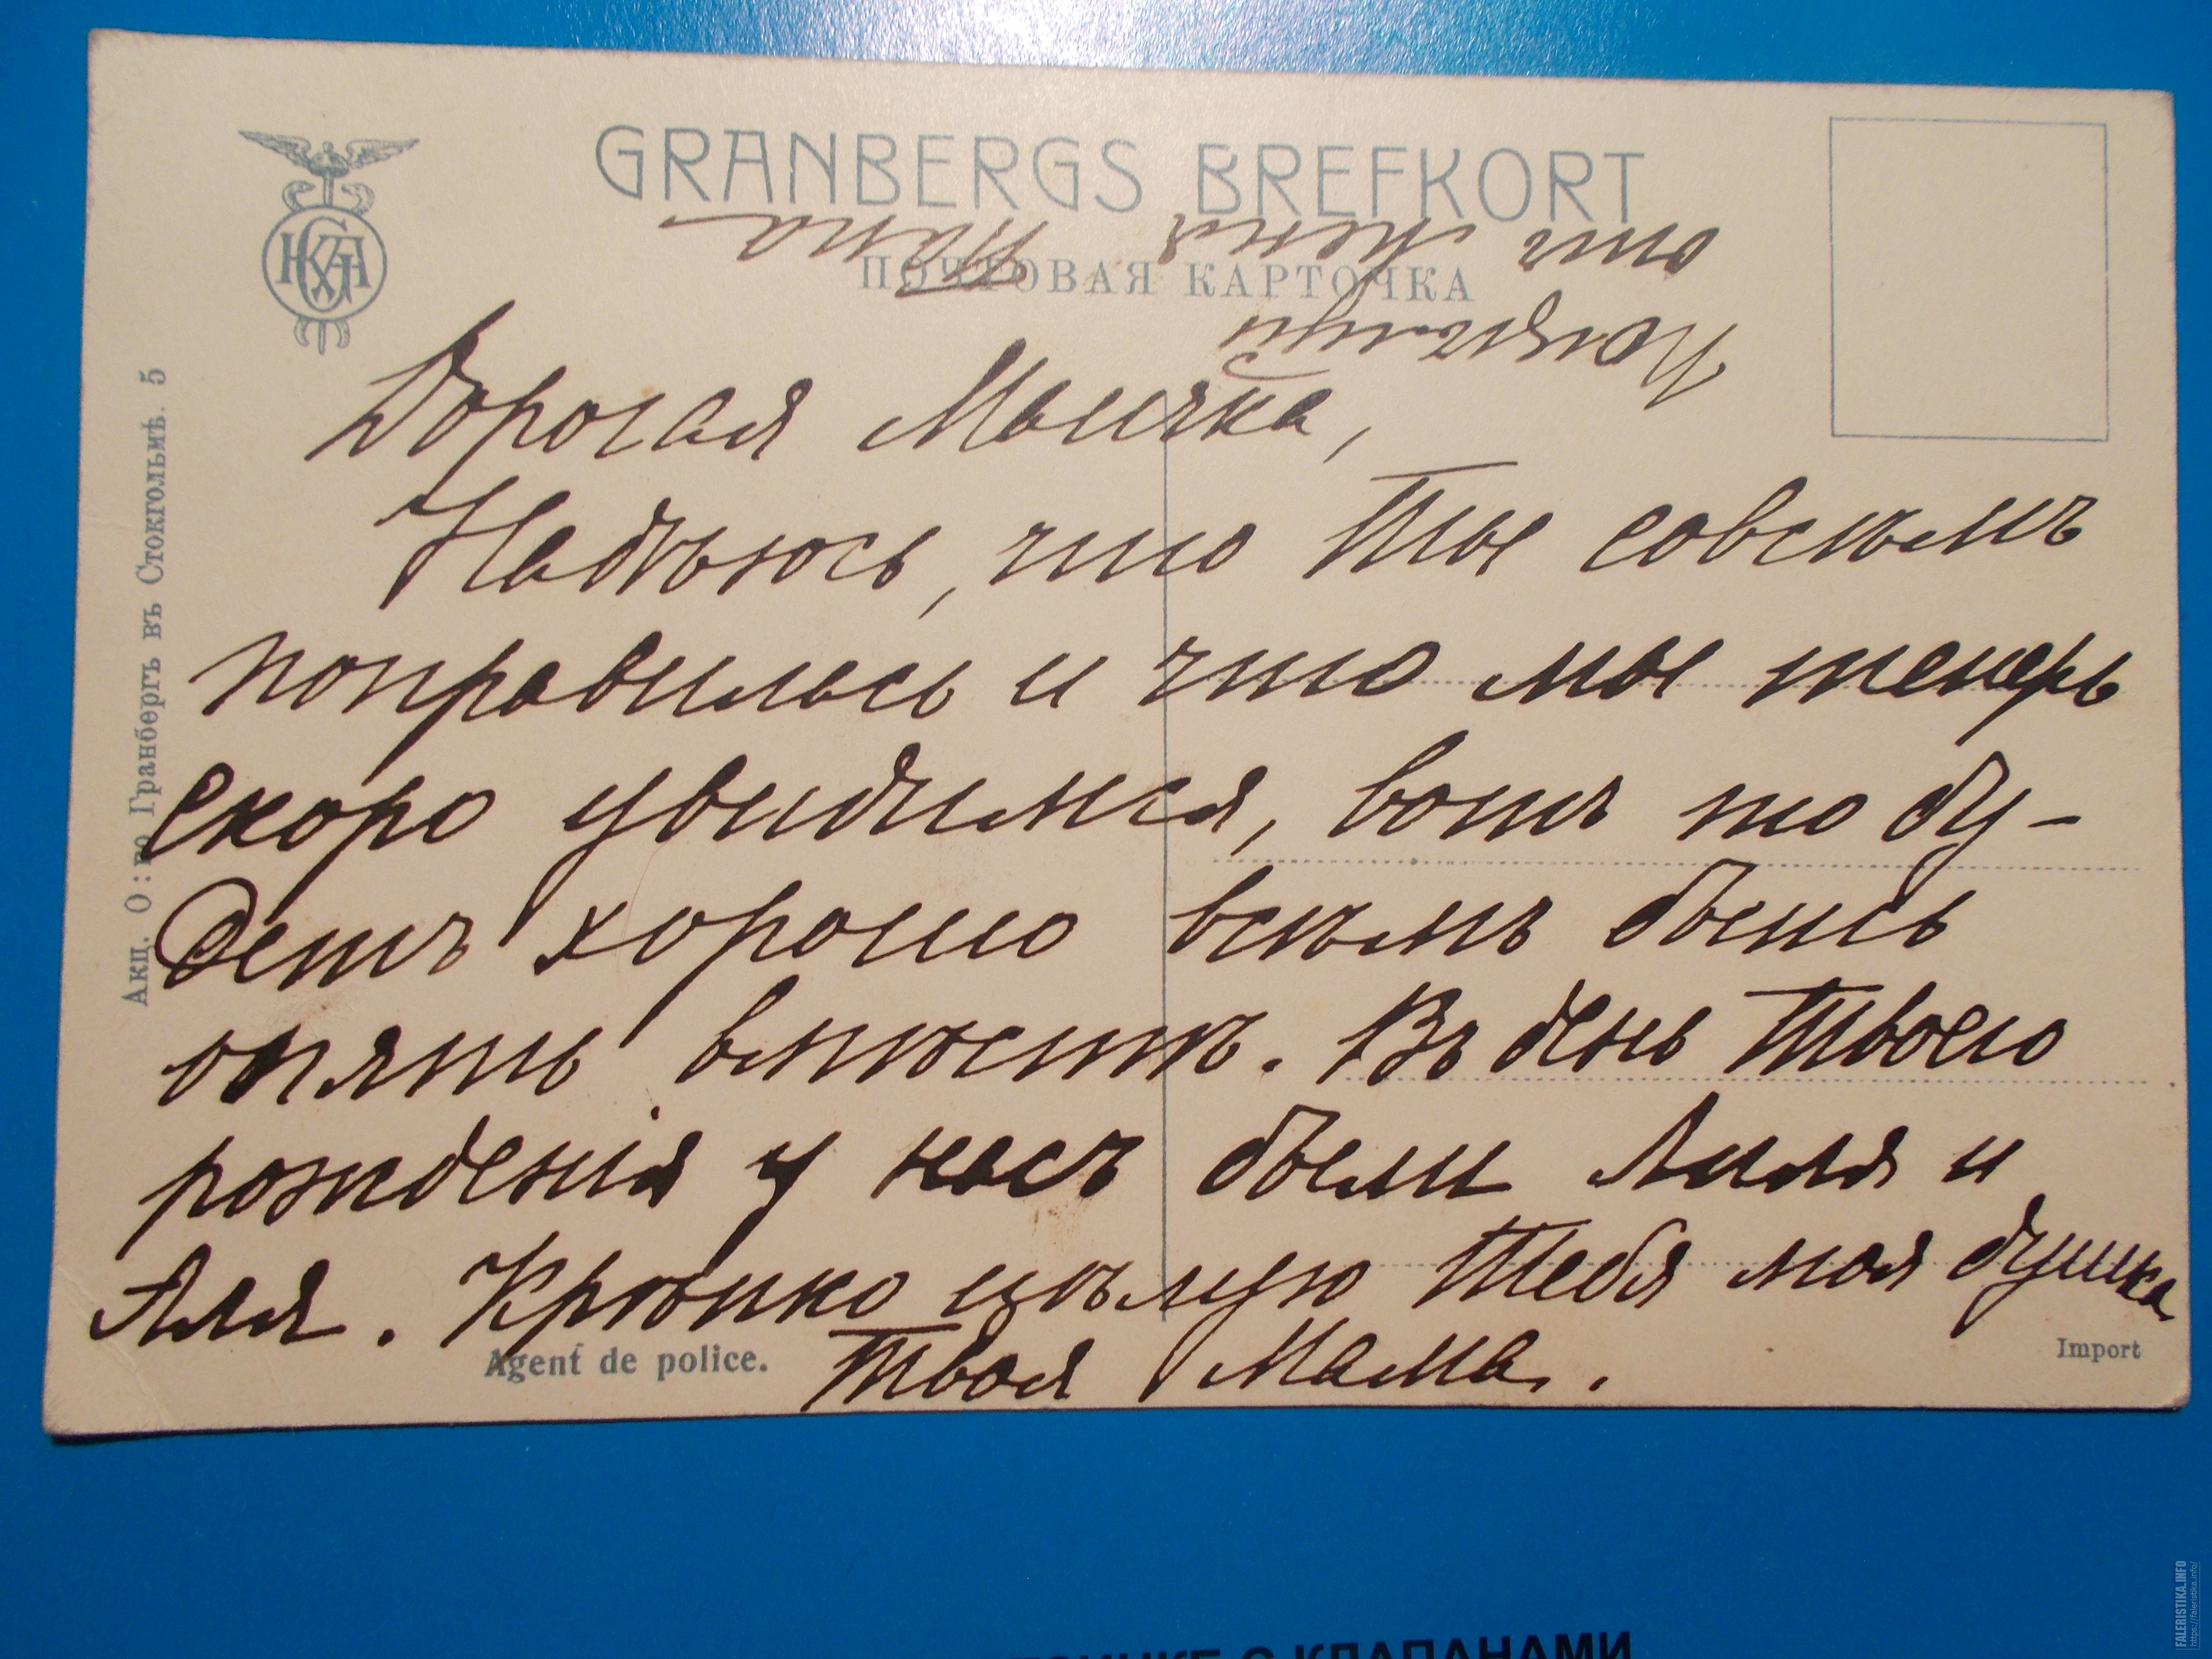 GRANBERGS BREFKORT
ПОЧТОВАЯ КАРТОЧКА
Акц. О:во Гранбергъ въ Стокгольмѣ. 5
Дорогая Мысчка,
Надѣюсь, что Ты совсѣмъ
поправилась и что мы теперь
скоро увидимся, вотъ то бу-
детъ хорошо всѣмъ быть
опять вмѣстѣ. Въ день Твоего
рожденія у насъ были Лиля и
Аля. Крѣпко цѣлую Тебя моя душка
Твоя Мама.
Поцѣлуй
отъ меня
Папа
Agent de police.
Import
FALERISTIKA.INFO
https://faleristika.info/
С КЛАПАНАМИ